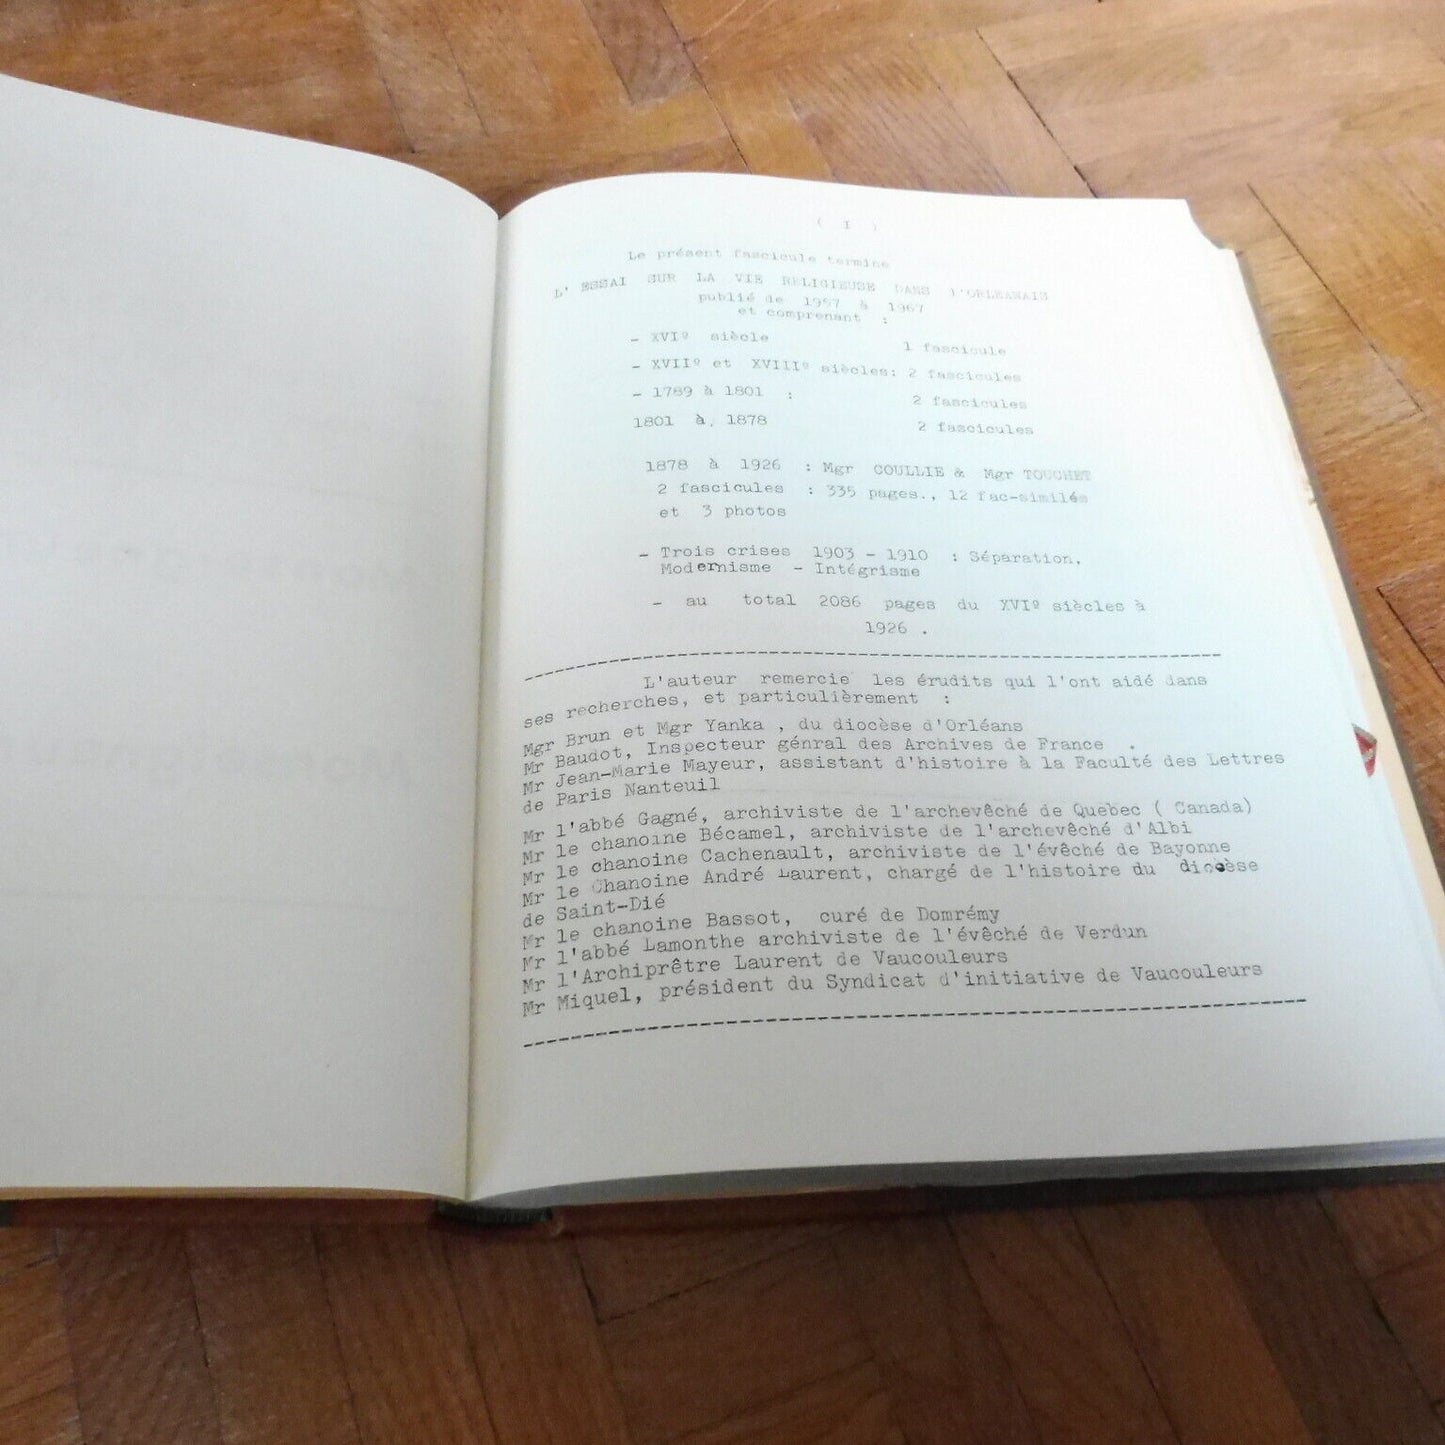 ( I )
Le présent fascicule termine
L' ESSAI SUR LA VIE RELIGIEUSE DANS l'ORLEANAIS
publié de 1957 à 1967
et comprenant :
- XVIº siècle 1 fascicule
- XVIIº et XVIIIº siècles: 2 fascicules
- 1789 à 1801 : 2 fascicules
1801 à 1878 2 fascicules
1878 à 1926 : Mgr COULLIE & Mgr TOUCHET
2 fascicules : 335 pages., 12 fac-similés
et 3 photos
- Trois crises 1903 - 1910 : Séparation,
Modernisme - Intégrisme
- au total 2086 pages du XVIº siècles à
1926 .
L'auteur remercie les érudits qui l'ont aidé dans
ses recherches, et particulièrement :
Mgr Brun et Mgr Yanka , du diocèse d'Orléans
Mr Baudot, Inspecteur génral des Archives de France .
Mr Jean-Marie Mayeur, assistant d'histoire à la Faculté des Lettres
de Paris Nanteuil
Mr l'abbé Gagné, archiviste de l'archevêché de Quebec ( Canada)
Mr le chanoine Bécamel, archiviste de l'archevêché d'Albi
Mr le chanoine Cachenault, archiviste de l'évêché de Bayonne
Mr le Chanoine André Laurent, chargé de l'histoire du diocèse
de Saint-Dié
Mr le chanoine Bassot, curé de Domrémy
Mr l'abbé Lamonthe archiviste de l'évêché de Verdun
Mr l'Archiprêtre Laurent de Vaucouleurs
Mr Miquel, président du Syndicat d'initiative de Vaucouleurs